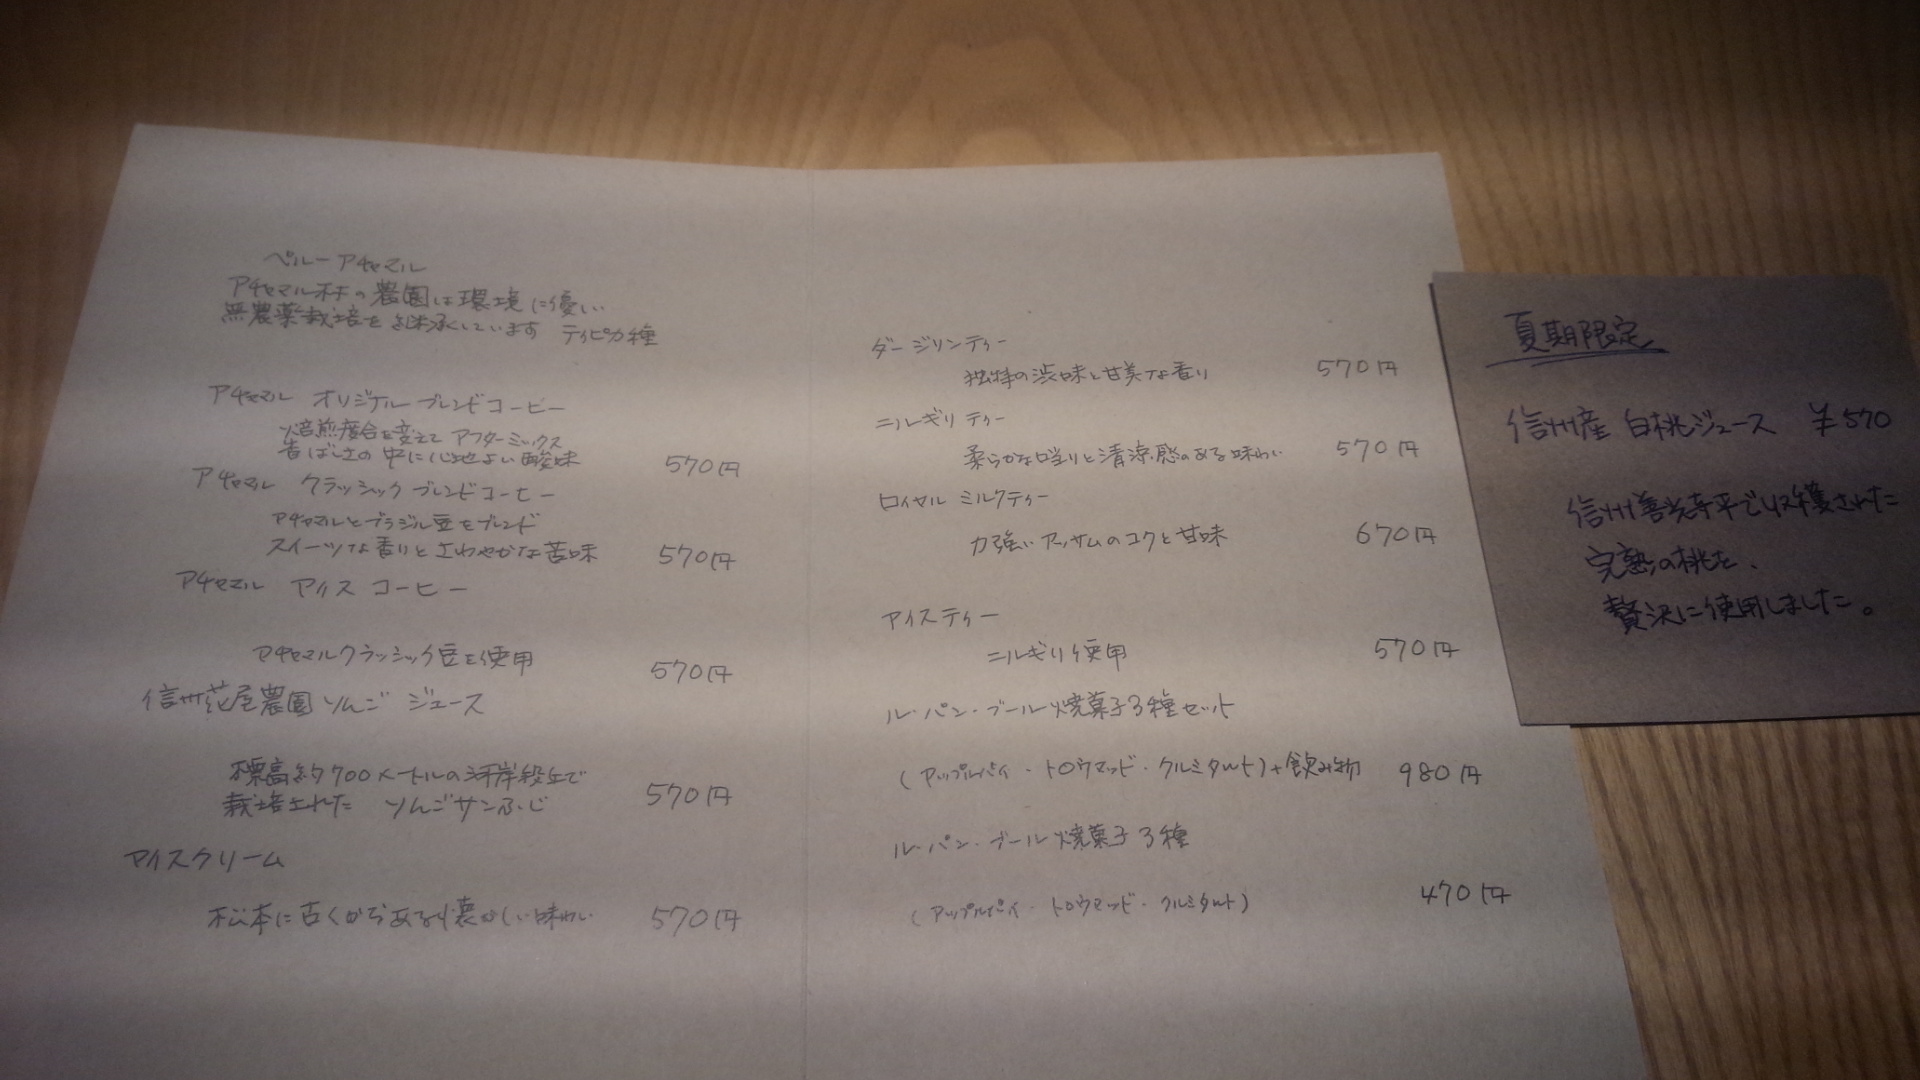 ペルーアチャマル
アチャマル村の農園は環境に優い
無農薬栽培を継承しています ティピカ種
アチャマル オリジナルブレンドコーヒー
焙煎度合を変えて アフターミックス
香ばしさの中に心地よい酸味 570円
アチャマル クラッシックブレンドコーヒー
アチャマルとブラジル豆をブレンド
スイーツな香りとさわやかな苦味 570円
アチャマル アイス コーヒー
アチャマルクラッシック豆を使用 570円
信州花屋農園りんご ジュース
標高約700メートルの河岸段丘で
栽培された りんごサンふじ 570円
アイスクリーム
松本に古くからある懐かしい味わい 570円
ダージリンティー
独特の渋味と甘美な香り 570円
ニルギリ ティー
柔らかな口当りと清涼感のある味わい 570円
ロイヤル ミルクティー
力強いアッサムのコクと甘味 670円
アイスティー
ニルギリ使用 570円
ル・パン・ブール焼菓子3種セット
(アップルパイ・トロウマッド・クルミタルト)+飲み物 980円
ル・パン・ブール焼菓子3種
(アップルパイ・トロウマッド・クルミタルト) 470円
夏期限定
信州産 白桃ジュース ¥570
信州善光寺平で収穫された
完熟の桃を、
贅沢に使用しました。